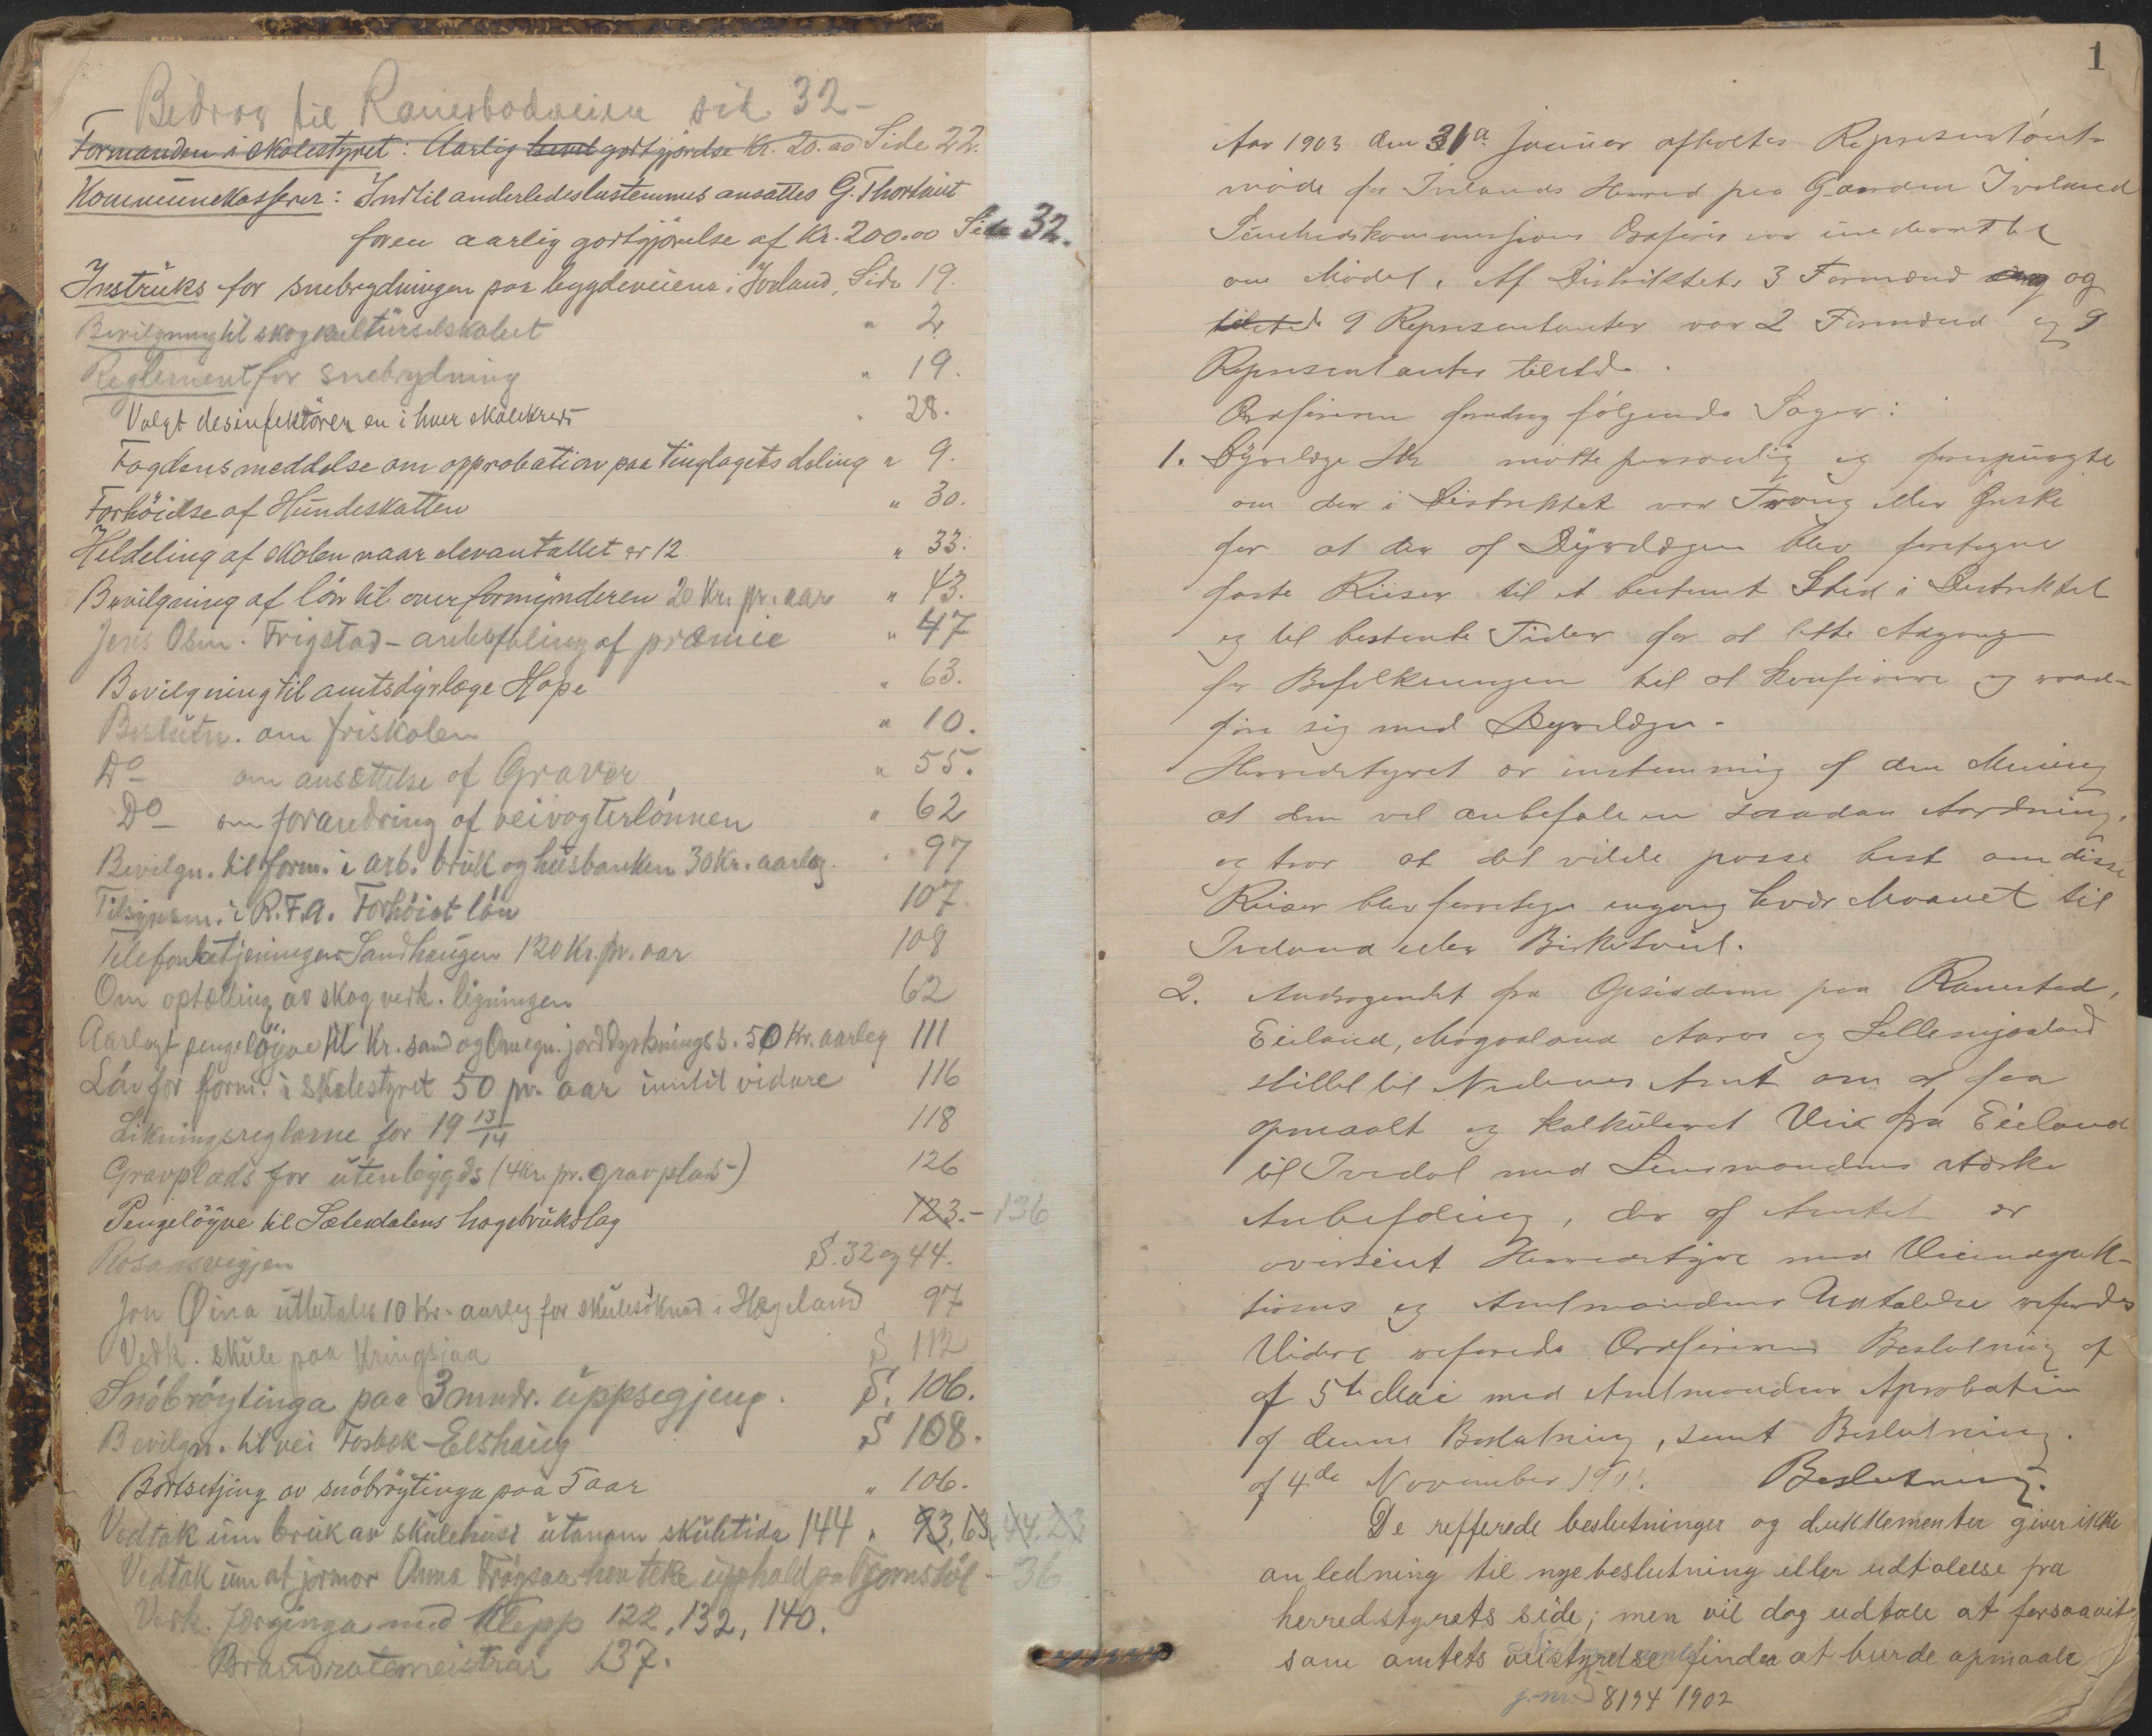 Bidrag til Ranestadveien sid. 32 -
Formanden i skolestyret: Aarlig godtgjørelse Kr. 20.00 Side 22.
Kommunekasserer: Indtil anderledes bestemmes ansattes G. Thortveit
for en aarlig godtgjörelse af Kr. 200.00 Side 32.
Instruks for snebrydningen paa bygdeveiene i Iveland, Side 19.
Bevilgning til skogkulturselskabet " 2
Reglement for snebrydning " 19.
Valgt desinfektörer en i hver skolekreds " 28.
Fogdens meddelse om opprobation paa tinglagets deling " 9.
Forhöielse af Hundeskatten " 30.
Heldeling af skolen naar elevantallet er 12 " 33.
Bevilgning af lön til overformynderen 20 Kr. pr. aar " 43.
Jens Olsen Frigstad - anbefaling af præmie " 47
Bevilgning til amtsdyrlæge Hope " 63.
Beslutn. om friskolen " 10.
Do om ansættelse af Graver " 55.
Do om forandring af veivogterlönnen " 62
Bevilgn. til form. i arb. bruk og husbanken 30 Kr. aarleg. " 97
Tilsynsm. i R.F.A. Forhöiet lön 107.
Telefonbetjeningen Sandhaugen 120 Kr. pr. aar 108
Om optælling av skog vedk. ligningen 62
Aarlegt pengelöyve til Kr.sand og Omegn. jorddyrkningss. 50 Kr. aarleg 111
Lön for form. i skolestyret 50 pr. aar inntil vidare 116
Likningsreglarne for 19 13/14 118
Gravplads for utenbygds (4 Kr. pr. gravplads) 126
Pengelöyve til Sætesdalens hagebrukslag 123. - 136
Rosaasvegjen S. 32 og 44.
Jon Øina utbetales 10 Kr. aarleg for skulesöknad i Hægeland 97
Vedk. skule paa Kringsjaa S 112
Snöbröytinga paa 3 mndr. uppsegjing. S. 106.
Bevilgn. til vei Fosbæk - Elshaug S 108.
Bortsetjing av snöbröytinga paa 5 aar " 106.
Vedtak um bruk av skulehusi utanom skuletida 144 " 93, 63, 44, 23
Vedtak um at jormor Anna Frögsaa hev teke upphald pa Tjomstöl - 36
Vedk. færginga med Klepp 122, 132, 140.
Brandrotemeistrar 137.
1
Aar 1903 den 31a Januar afholtes Represententant-
möde for Ivelands Herred paa Gaarden Iveland
Sundhedskommissjons Ordförer var underrettet
om Mödet. Af Distriktets 3 Formænd og
9 Representanter var 2 Formænd og 9
Representanter tilsted.
Ordföreren foredrog fölgende Sager:
1. Dyrlæge Hr mötte personlig og forespurgte
om der i Distriktet var Trang eller Ønske
for at der af Dyrlægen blev foretagne
faste Reiser til et bestemt Sted i Distriktet
og til bestemte Tider for at lette Adgangen
for Befolkningen til at konferere og raad-
före sig med Dyrlægen.
Herredstyret er enstemmig af den Mening
at den vil anbefale en saadan Anordning.
og tror at det vilde passe best om disse
Reiser blev foretaget engang hver Maanet til
Iveland eller Birketveit.
2. Andragendet fra Opsidderne paa Ranestad,
Eieland, Mogaaland Aaros og Lillemjaaland
stillet til Nedenes Amt om at faa
opmaalt og kalkuleret Vei fra Eieland
til Ivedal med Lensmandens
Anbefaling, der af Amtet er
oversent Herredstyre med Veiinspek-
tiøens og Amtmandens Udtalelse referedes
Videre referede Ordföreren Beslutning af
af 5te Mai med Amtmandens Aprobation
af denne Beslutning, samt Beslutning.
af 4de November 1901. Beslutning.
De refferede beslutninger og dukkementer giver ikke
anledning til nye beslutning eller udtalelse fra
herredstyrets side; men vil dog udtale at forsaavit
som amtets veistyrelse finder at burde opmaale
j.-nr. 8194 1902